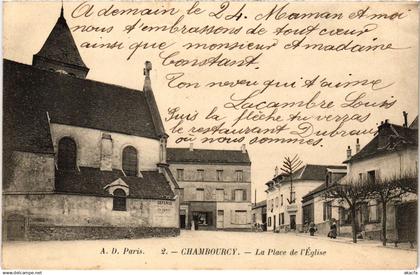 A demain le 24. Maman et moi
nous t'embrassons de tout cœur
ainsi que monsieur et madame
Constant.
Ton neveu qui t'aime
Lacambre Louis
Suis la flèche tu verras
le restaurant Dubrau
où nous sommes.
DÉFENSE
A. D. Paris. 2. — CHAMBOURCY. — La Place de l'Église